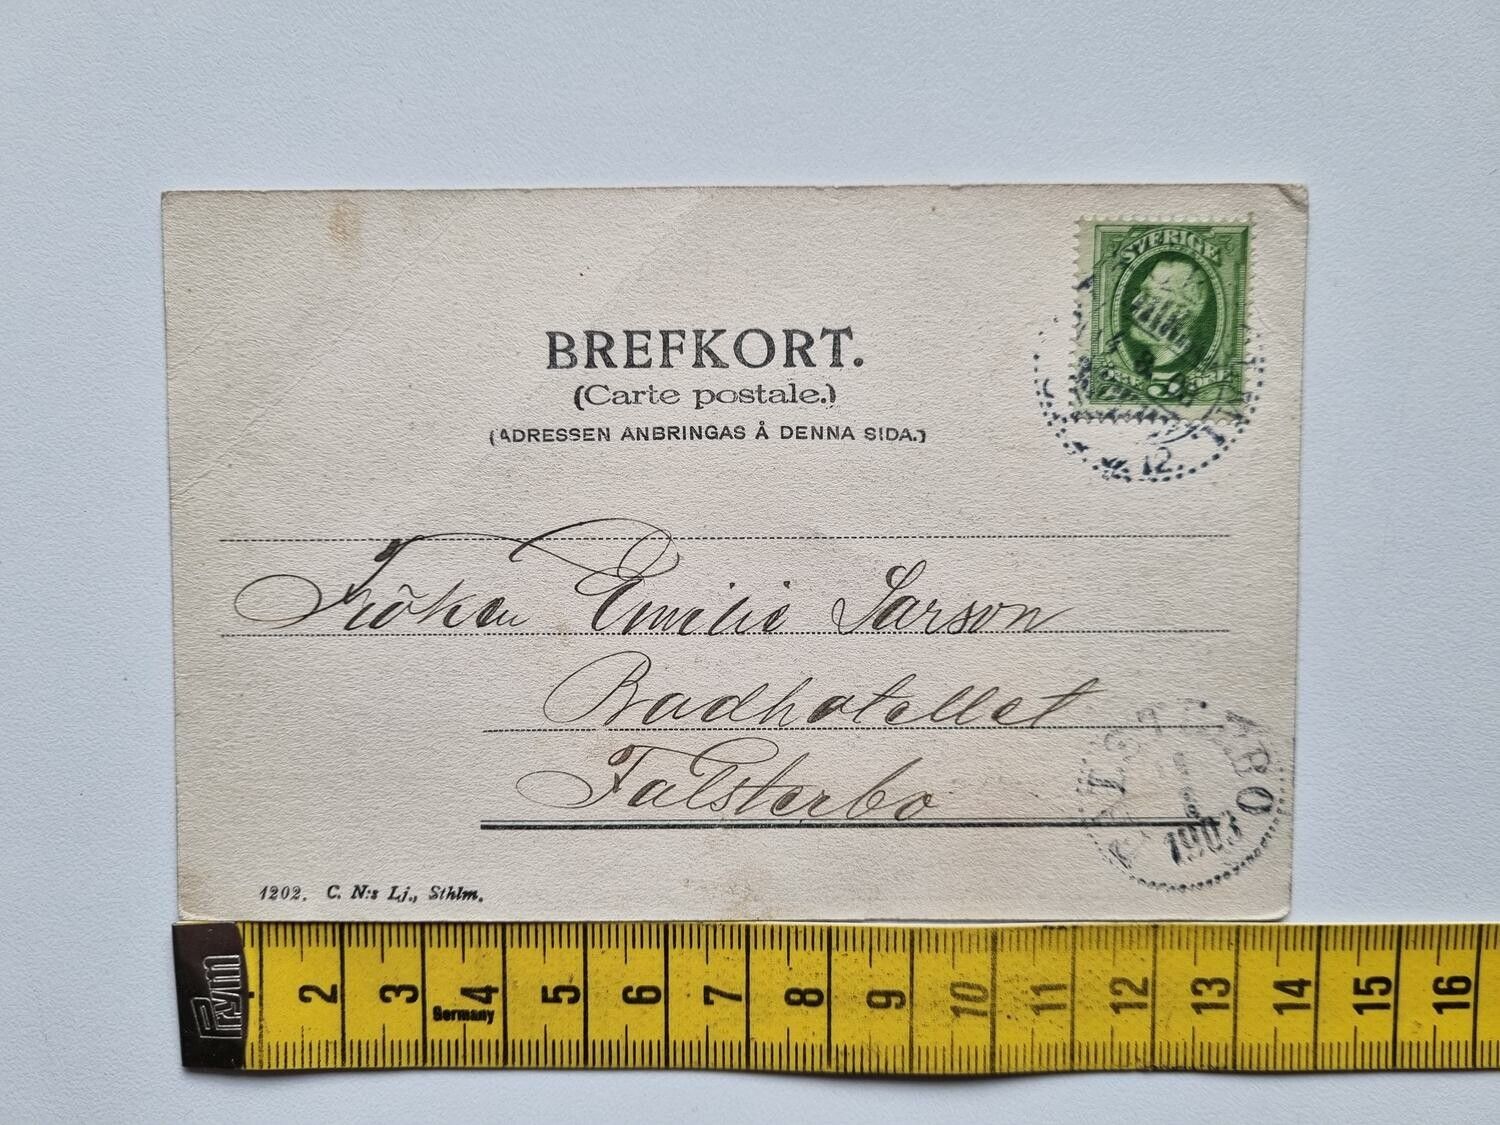 SVERIGE
5
12
BREFKORT.
(Carte postale.)
(ADRESSEN ANBRINGAS Å DENNA SIDA.)
Fröken Emilie Larson
Badhotellet
Falsterbo
1903
1202. C. N:s Lj., Sthlm.
Prym
2 3 4 5 6 7 8 9 10 11 12 13 14 15 16
Germany